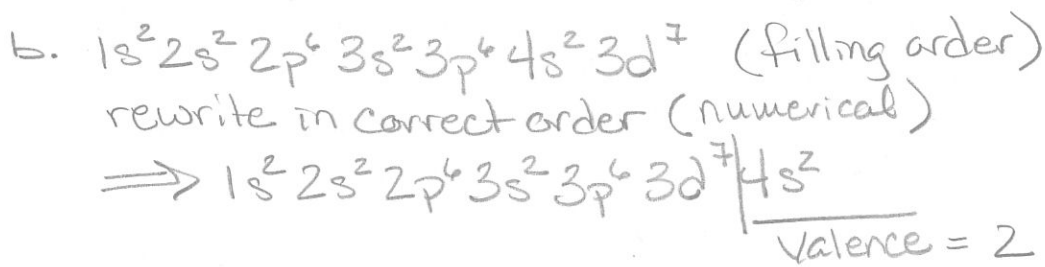 b. 1s² 2s² 2p⁶ 3s² 3p⁶ 4s² 3d⁷ (filling order)
rewrite in correct order (numerical)
⟹ 1s² 2s² 2p⁶ 3s² 3p⁶ 3d⁷ | 4s²
Valence = 2